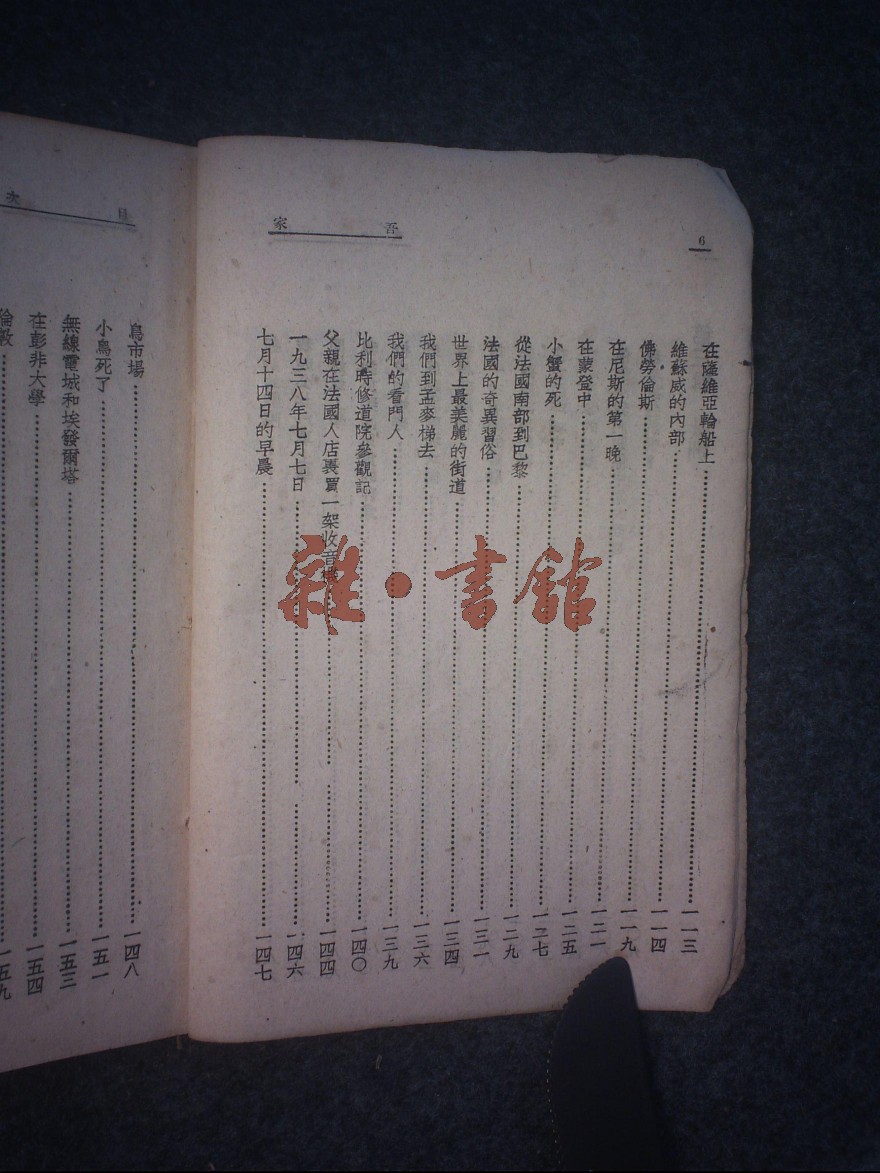 6
吾家
在薩維亞輪船上……一一三
維蘇威的內部……一一四
佛勞倫斯……一一九
在尼斯的第一晚……一二一
在蒙登中……一二五
小蟹的死……一二七
從法國南部到巴黎……一二九
法國的奇異習俗……一三一
世界上最美麗的街道……一三四
我們到孟麥梯去……一三六
我們的看門人……一三九
比利時修道院參觀記……一四〇
父親在法國人店裏買一架收音機……一四四
一九三八年七月七日……一四六
七月十四日的早晨……一四七
目次
鳥市場……一四八
小鳥死了……一五一
無線電城和埃發爾塔……一五三
在彭非大學……一五四
倫敦……一五九
雜·書館